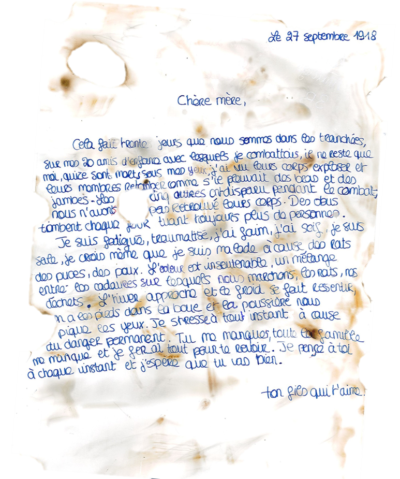 Le 27 septembre 1918
Chère mère,
Cela fait trente jours que nous sommes dans les tranchées,
sur mes 20 amis d'enfance avec lesquels je combattais, il ne reste que
moi, quinze sont morts sous mes yeux, j'ai vu leurs corps exploser et
leurs membres comme s'il pleuvait des bras et des
jambes. Les cinq autres ont disparu pendant le combat,
nous n'avons pas retrouvé leurs corps. Des obus
tombent chaque jour tuant toujours plus de personnes.
Je suis fatigué, traumatisé, j'ai faim, j'ai soif, je suis
sale, je crois même que je suis malade à cause des rats
des puces, des poux. L'odeur est insoutenable, un mélange
entre les cadavres sur lesquels nous marchons, les rats, nos
déchets. L'hiver approche et le froid se fait ressentir,
on a les pieds dans la boue et la poussière nous
pique les yeux. Je stresse à tout instant à cause
du danger permanent. Tu me manques, toute la famille
me manque et je ferai tout pour te revoir. Je pense à toi
à chaque instant et j'espère que tu vas bien.
ton fils qui t'aime.